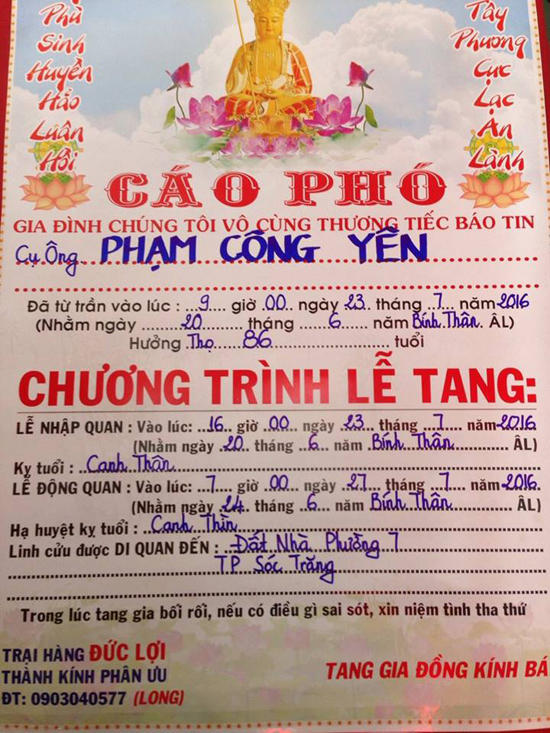 Phù
Sinh
Huyền
Hảo
Luân
Hồi
Tây
Phương
Cực
Lạc
An
Lành
CÁO PHÓ
GIA ĐÌNH CHÚNG TÔI VÔ CÙNG THƯƠNG TIẾC BÁO TIN
Cụ Ông PHẠM CÔNG YÊN
Đã từ trần vào lúc : 9 giờ 00 ngày 23 tháng 7 năm 2016
(Nhằm ngày 20 tháng 6 năm Bính Thân ÂL)
Hưởng Thọ 86 tuổi
CHƯƠNG TRÌNH LỄ TANG:
LỄ NHẬP QUAN : Vào lúc: 16 giờ 00 ngày 23 tháng 7 năm 2016
(Nhằm ngày 20 tháng 6 năm Bính Thân ÂL)
Kỵ tuổi : Canh Thân
LỄ ĐỘNG QUAN : Vào lúc: 7 giờ 00 ngày 27 tháng 7 năm 2016
(Nhằm ngày 24 tháng 6 năm Bính Thân ÂL)
Hạ huyệt kỵ tuổi : Canh Thìn
Linh cửu được DI QUAN ĐẾN : Đất Nhà Phường 7
TP Sóc Trăng
Trong lúc tang gia bối rối, nếu có điều gì sai sót, xin niệm tình tha thứ
TRẠI HÀNG ĐỨC LỢI
THÀNH KÍNH PHÂN ƯU
ĐT: 0903040577 (LONG)
TANG GIA ĐỒNG KÍNH BÁ